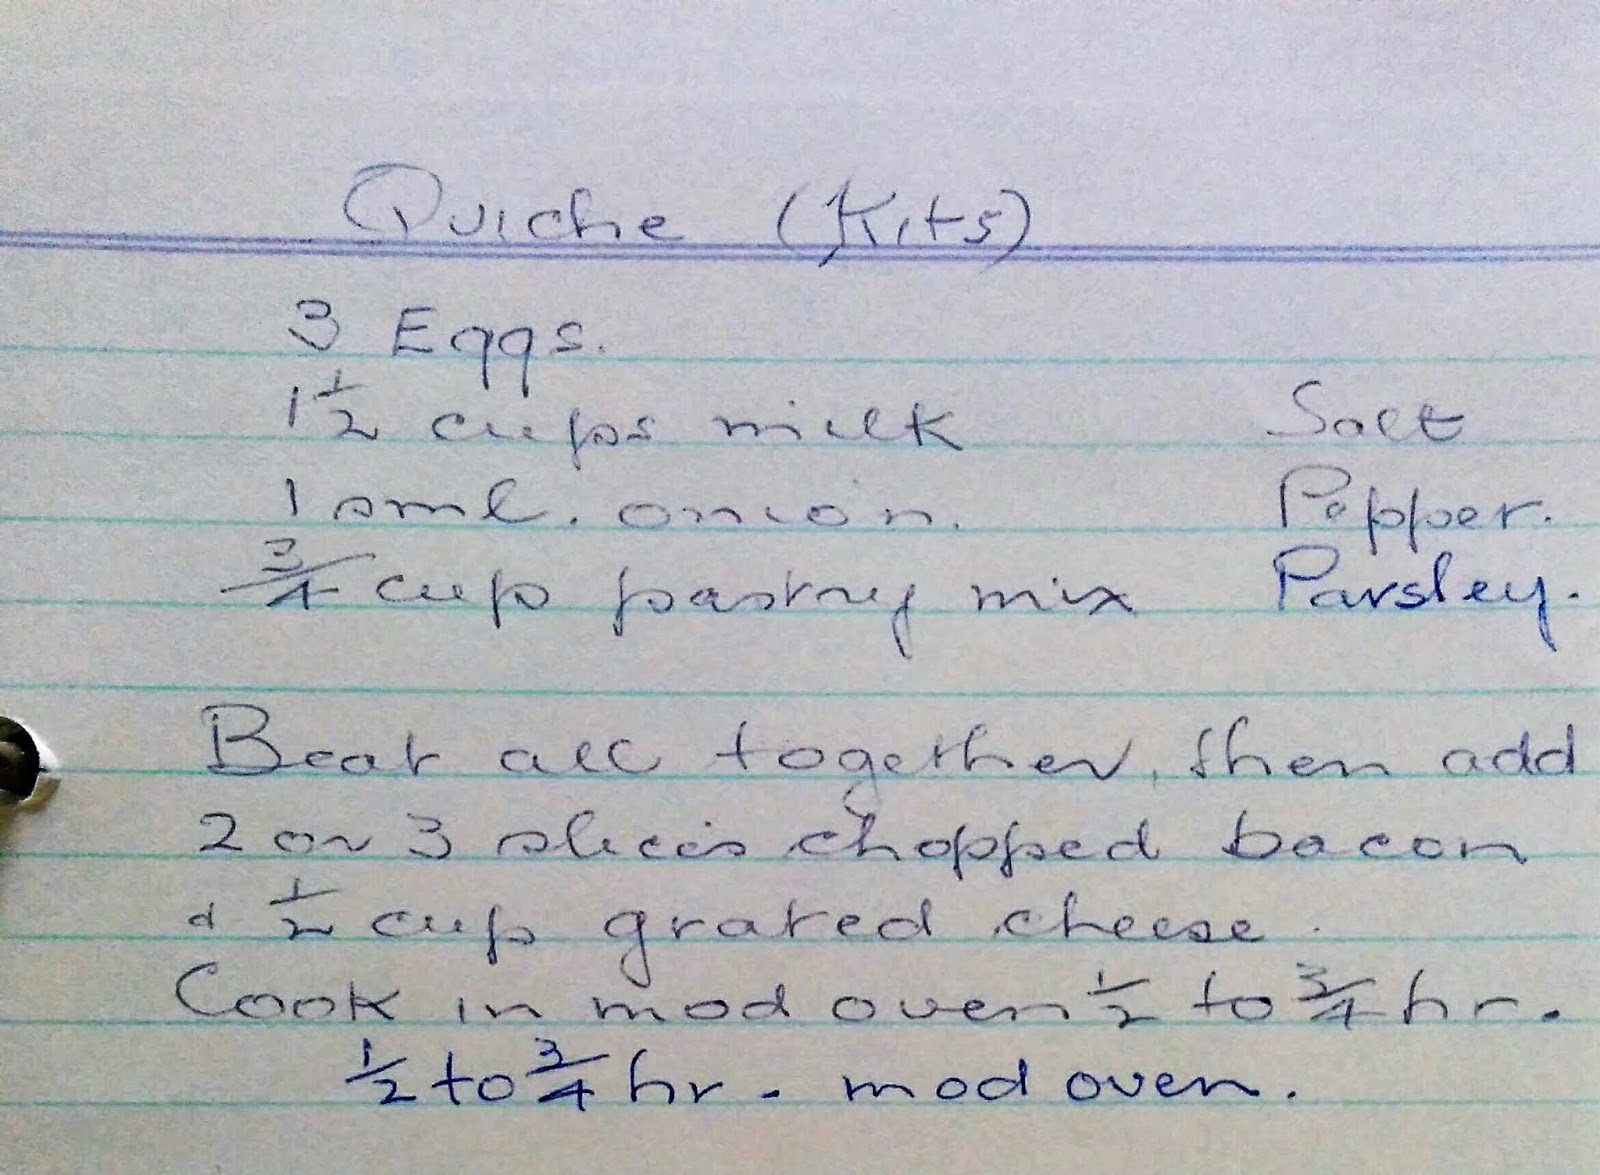 Quiche (Kits)
3 Eggs.
1 1/2 cups milk Salt
1 sml. onion. Pepper.
3/4 cup pastry mix Parsley.
Beat all together, then add
2 or 3 slices chopped bacon
& 1/2 cup grated cheese.
Cook in mod oven 1/2 to 3/4 hr.
1/2 to 3/4 hr. mod oven.